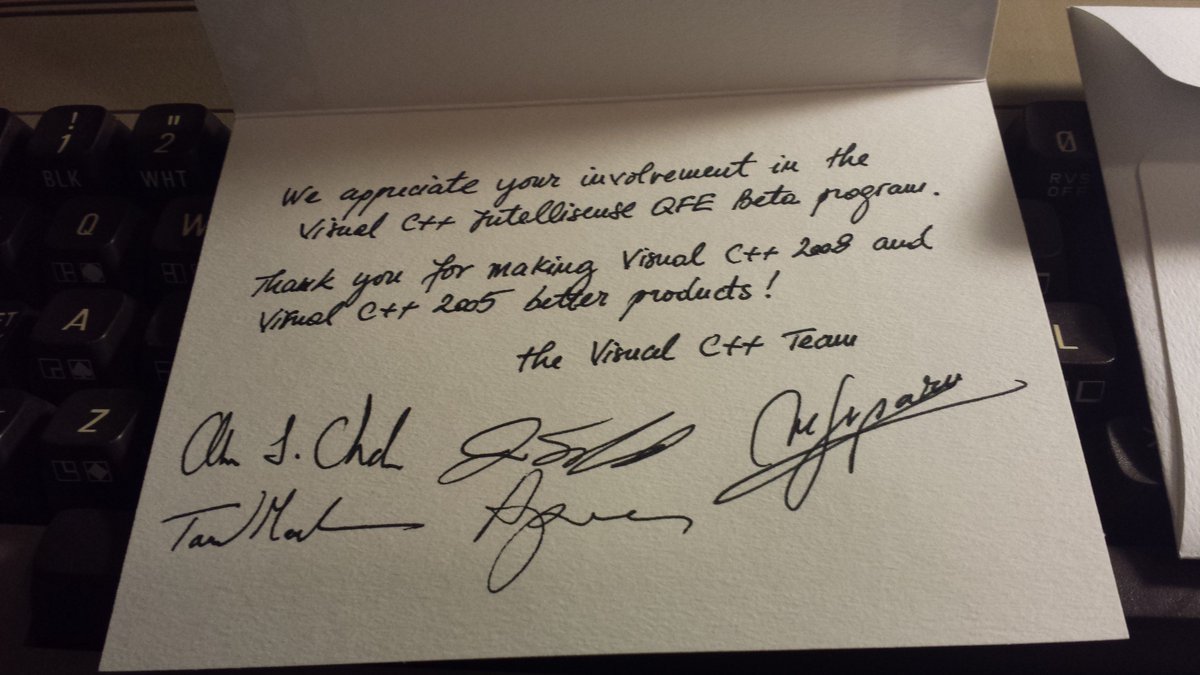 ! " 0
1 2
BLK WHT
RVS
OFF
Q W
A L
Z
We appriciate your involvement in the
Visual C++ Intellisense QFE Beta program.
Thank you for making Visual C++ 2008 and
Visual C++ 2005 better products!
the Visual C++ Team